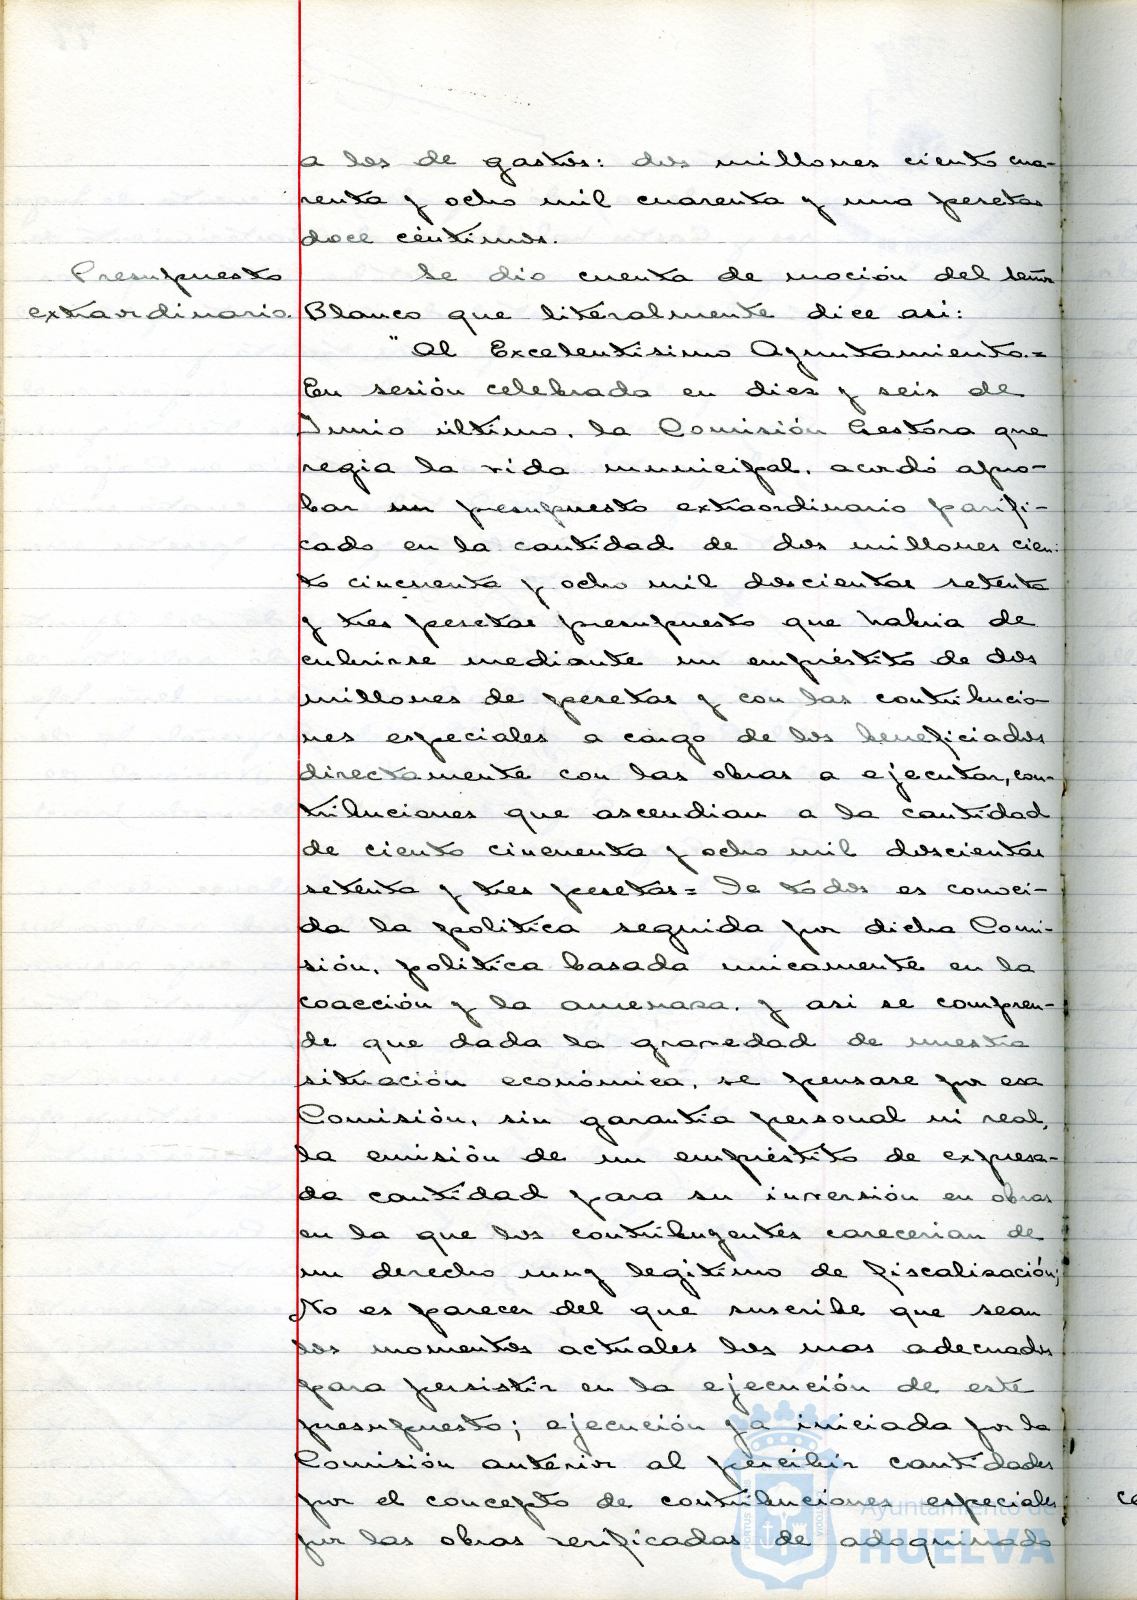 a los de gastos: dos millones ciento cua-
renta y ocho mil cuarenta y una pesetas
doce céntimos.
Presupuesto
extraordinario.
Se dio cuenta de moción del señor
Blanco que literalmente dice asi:
"Al Excelentisimo Ayuntamiento.=
En sesión celebrada en diez y seis de
Junio último, la Comisión Gestora que
regia la vida municipal, acordó apro-
bar un presupuesto extraordinario parifi-
cado en la cantidad de dos millones cien-
to cincuenta y ocho mil doscientas setenta
y tres pesetas presupuesto que habia de
cubrirse mediante un empréstito de dos
millones de pesetas y con las contribucio-
nes especiales a cargo de los beneficiados
directamente con las obras a ejecutar, con-
tribuciones que ascendian a la cantidad
de ciento cincuenta y ocho mil doscientas
setenta y tres pesetas= De todos es conoci-
da la politica seguida por dicha Comi-
sión, politica basada unicamente en la
coacción y la amenaza, y asi se compren-
de que dada la gravedad de nuestra
situación económica, se pensase por esa
Comisión, sin garantia personal ni real,
la emisión de un empréstito de expresa-
da cantidad para su inversión en obras
en la que los contribuyentes carecerian de
un derecho muy legitimo de fiscalización;
No es parecer del que suscribe que sean
los momentos actuales los mas adecuados
para persistir en la ejecución de este
presupuesto; ejecución ya iniciada por la
Comisión anterior al percibir cantidades
por el concepto de contribuciones especiales
por las obras verificadas de adoquinado
Ayuntamiento de
HUELVA